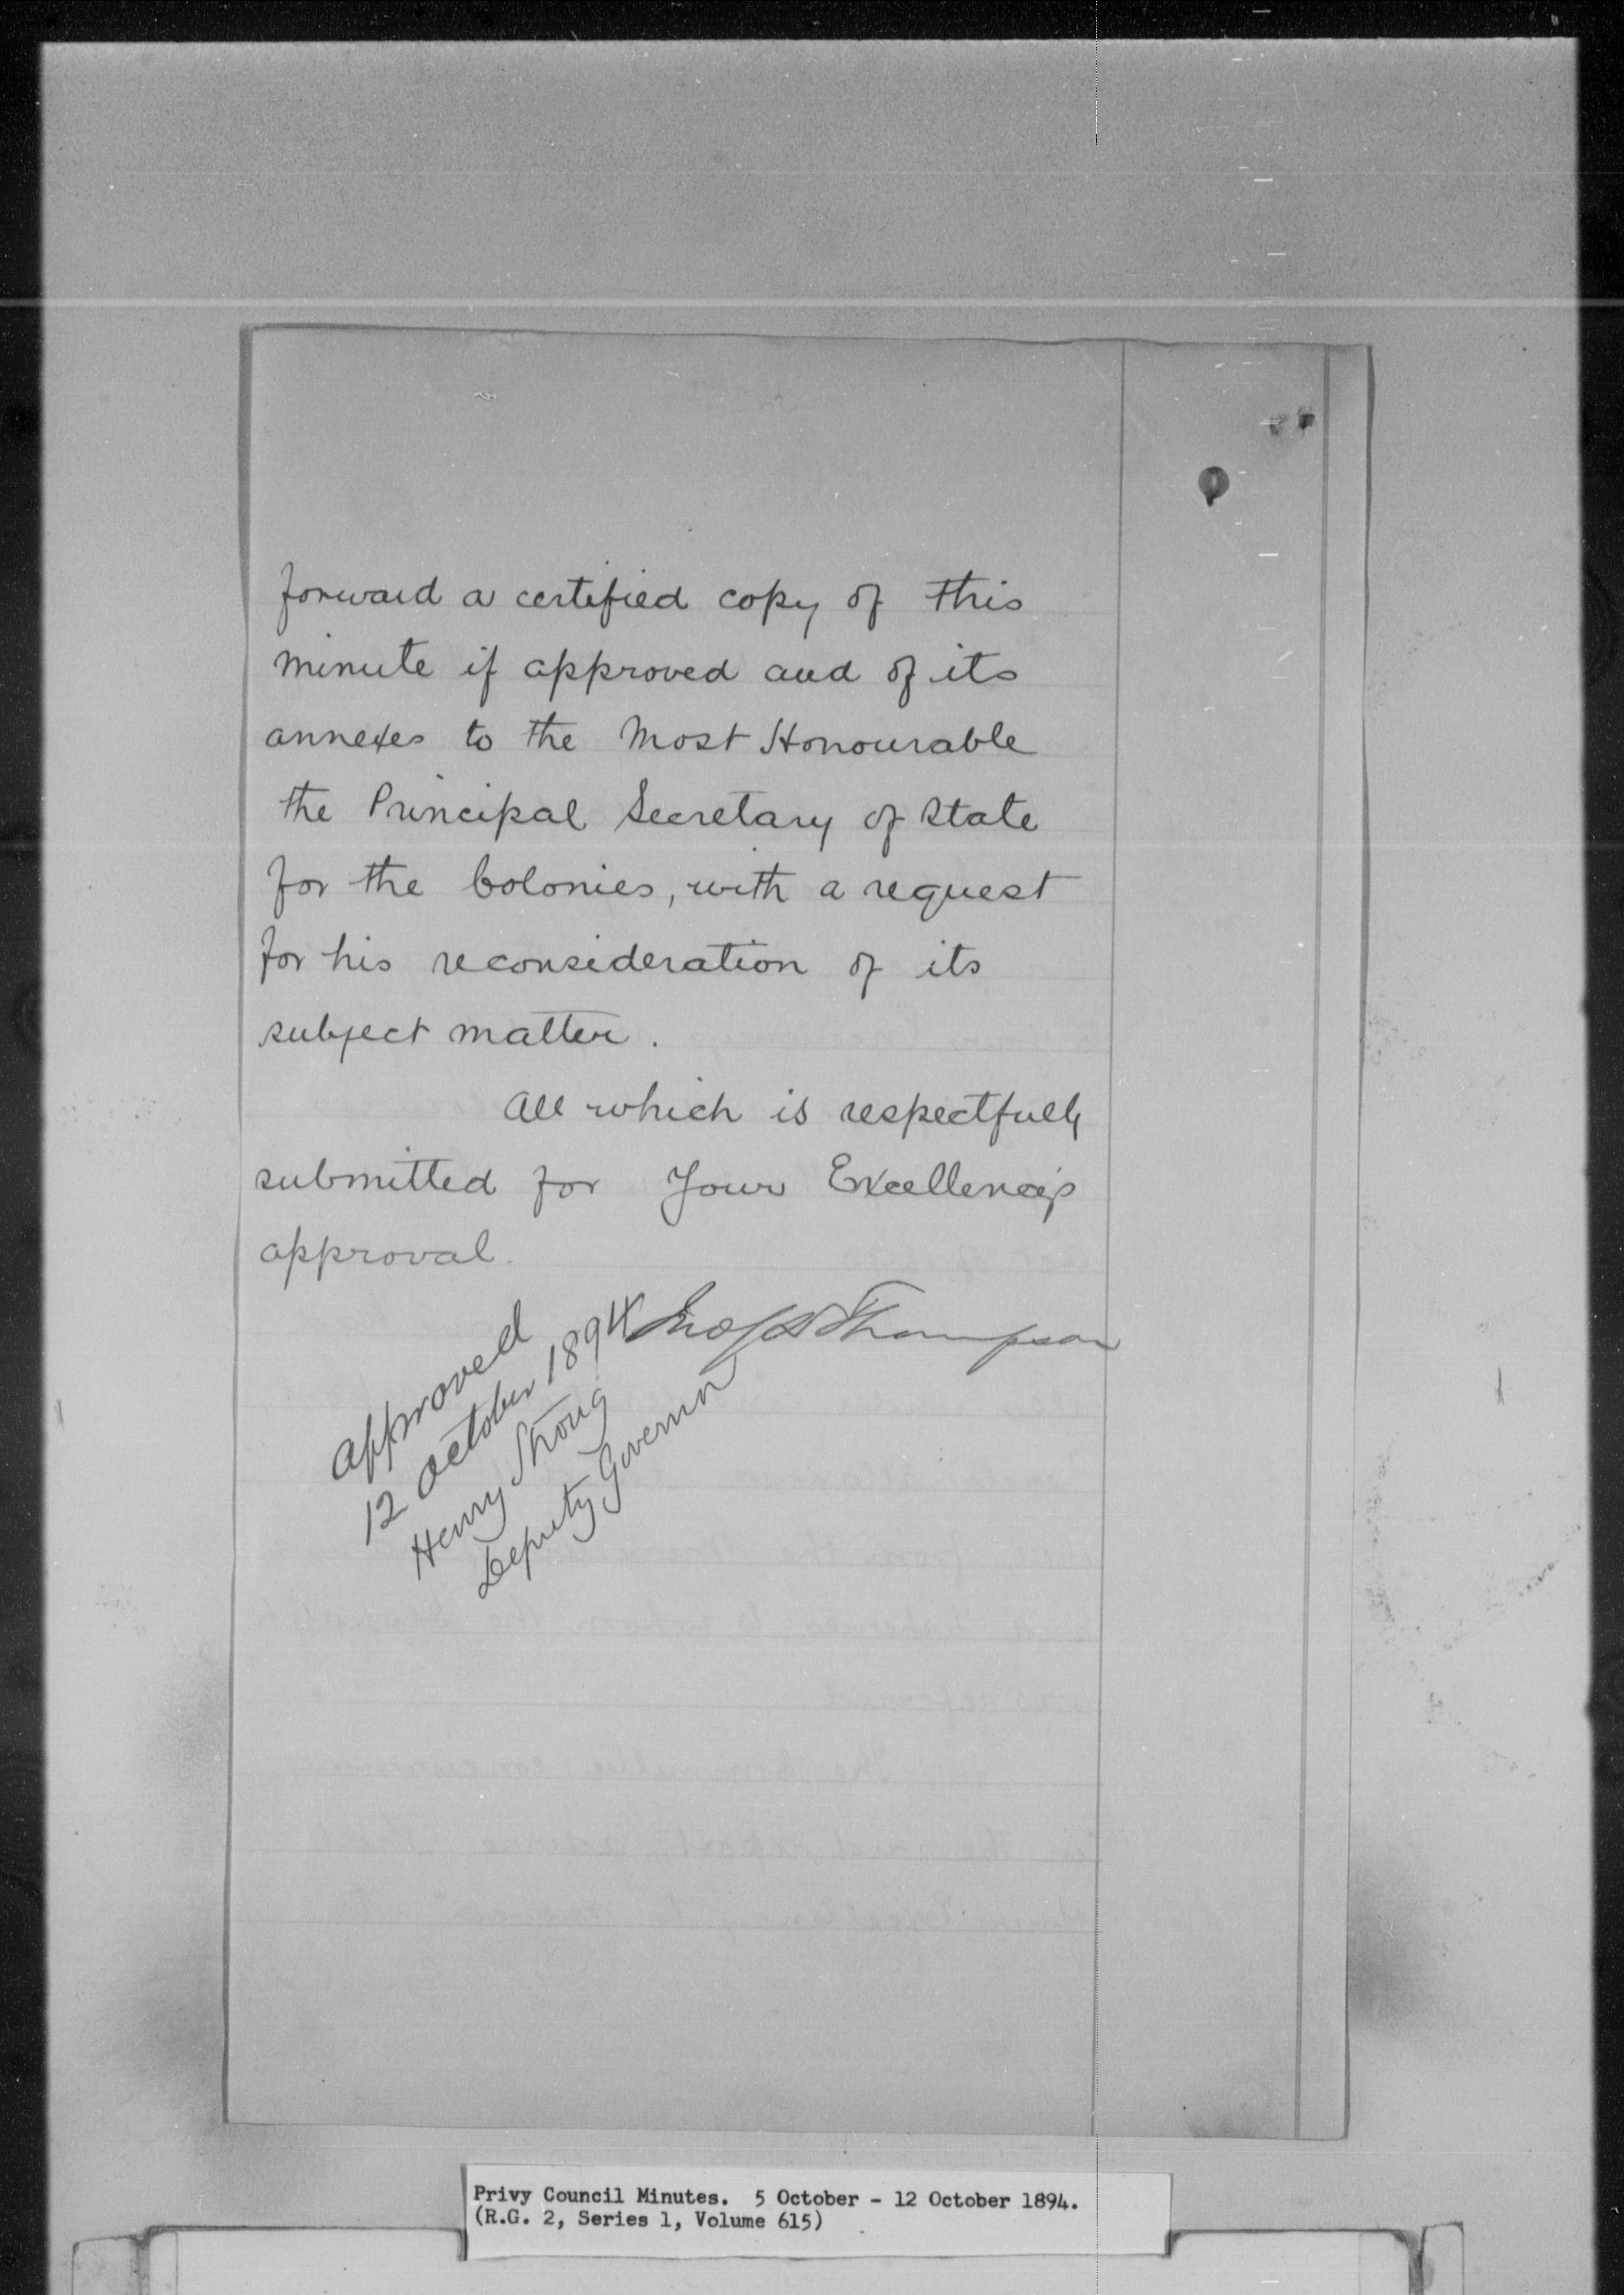 forward a certified copy of this
minute if approved and of its
annexes to the Most Honourable
the Principal Secretary of State
for the Colonies, with a request
for his reconsideration of its
subject matter.
All which is respectfully
submitted for Your Excellency's
approval.
Jno S D Thompson
Approved
12 October 1894
Henry Strong
Deputy Governor
Privy Council Minutes. 5 October - 12 October 1894.
(R.G. 2, Series 1, Volume 615)